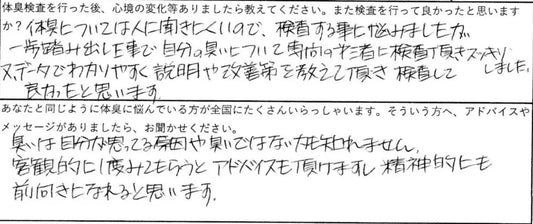 体臭検査を行った後、心境の変化等ありましたら教えてください。また検査を行って良かったと思います
か？体臭については人に聞きにくいので、検査する事に悩みましたが
一歩踏み出した事で自分の臭いについて専門の業者に検査頂きスッキリ
しました。
又、データでわかりやすく説明や改善策を教えて頂き検査して
良かったと思います。
あなたと同じように体臭に悩んでいる方が全国にたくさんいらっしゃいます。そういう方へ、アドバイスや
メッセージがありましたら、お聞かせください。
臭いは自分が思ってる原因や臭いではないかも知れません。
客観的に1度みてもらうとアドバイスも頂けますし精神的にも
前向きになれると思います。